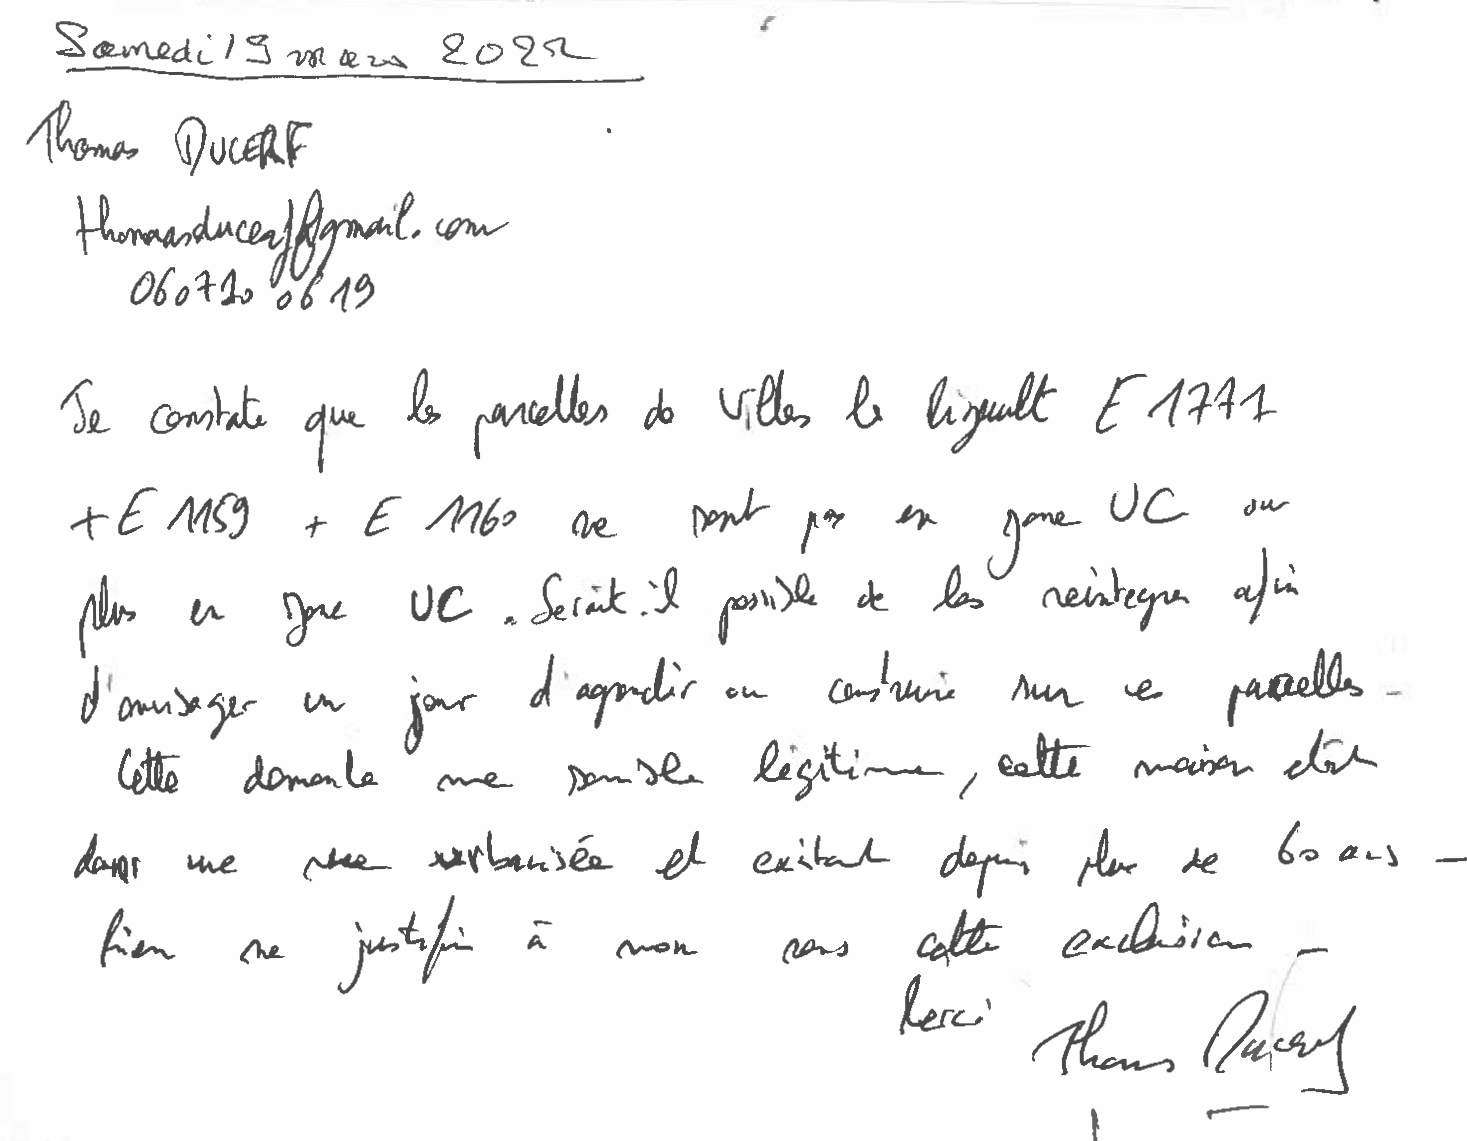 Samedi 19 mars 2022
Thomas DUCERF
thomasducerf@gmail.com
060710 0619
Je constate que les parcelles de Villes le E 1771
+ E 1159 + E 1160 ne sont pas en zone UC ou
plus en zone UC. Serait-il possible de les reintegrer afin
d'envisager un jour d'agrandir ou construire sur ces parcelles -
Cette demande me semble légitime, cette maison étant
dans une rue urbanisée et existant depuis plus de 60 ans -
Rien ne justifie à mon sens cette exclusion -
Merci
Thomas Ducerf